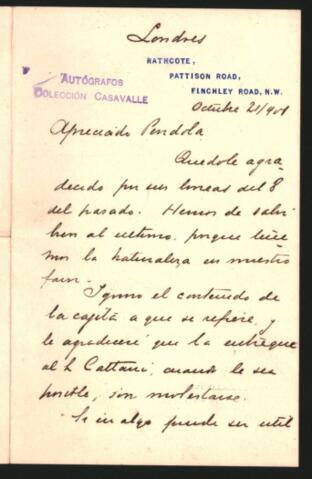 Londres
RATHCOTE,
PATTISON ROAD,
FINCHLEY ROAD, N.W.
AUTÓGRAFOS
COLECCIÓN CASAVALLE
Octubre 21/901
Apreciado Pendola
Quedole agra-
decido por sus lineas del 8
del pasado. Hemos de salir
bien al ultimo, porque tene
mos la naturaleza en nuestro
favor.
Ignoro el contenido de
la cajita a que se refiere, y
le agradeceré que la entregue
al Cattani, cuando le sea
posible, sin molestarse.
Si en algo puede ser util